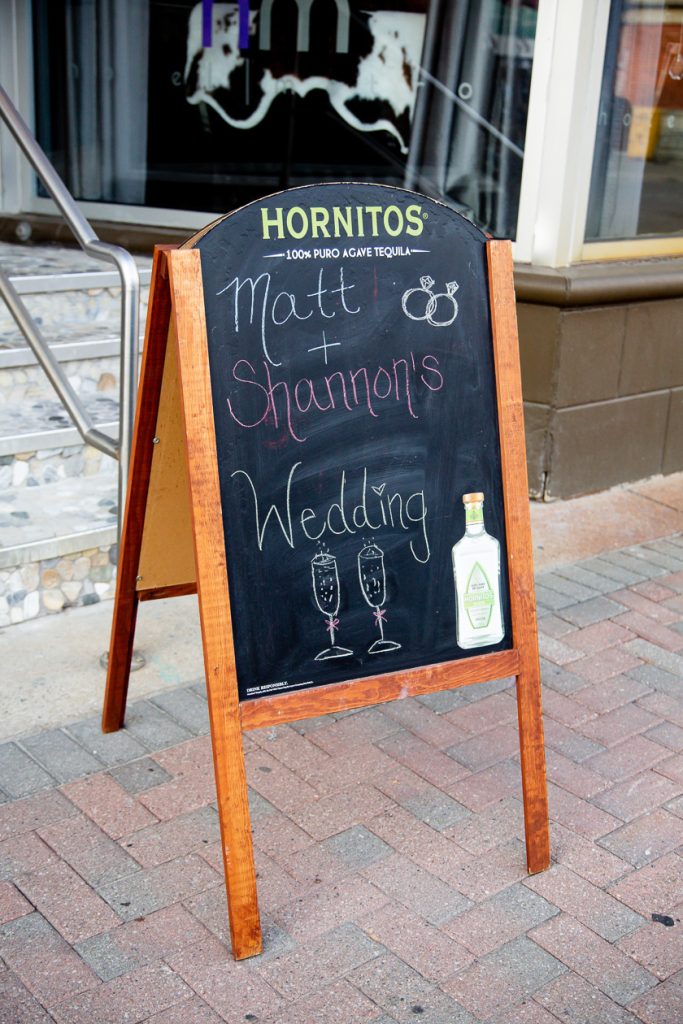 HORNITOS®
100% PURO AGAVE TEQUILA
Matt
+
Shannon's
Wedding
HORNITOS
DRINK RESPONSIBLY.